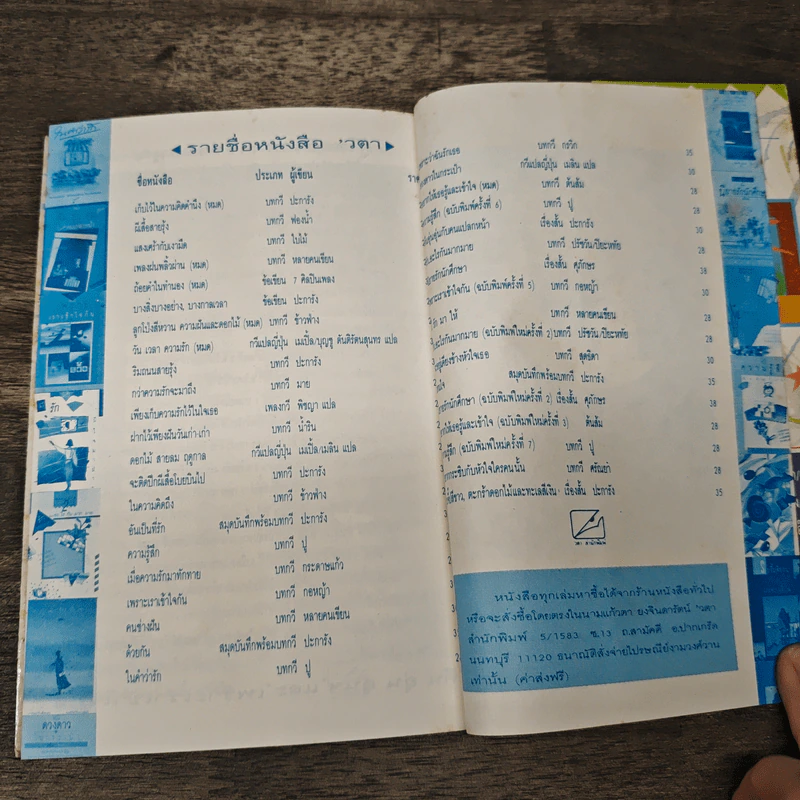 ◀ รายชื่อหนังสือ 'วตา ▶
ชื่อหนังสือ ประเภท ผู้เขียน
เก็บไว้ในความคิดคำนึง (หมด) บทกวี ปะการัง
ผีเสื้อสายรุ้ง บทกวี ฟองน้ำ
แสงเศร้ากับเงามืด บทกวี ใบไม้
เพลงฝนพลิ้วผ่าน (หมด) บทกวี หลายคนเขียน
ถ้อยคำในทำนอง (หมด) ข้อเขียน 7 ศิลปินเพลง
บางสิ่งบางอย่าง, บางกาลเวลา ข้อเขียน ปะการัง
ลูกโป่งสีหวาน ความฝันและดอกไม้ (หมด) บทกวี ข้าวฟ่าง
วัน เวลา ความรัก (หมด) กวีแปลญี่ปุ่น เมเปิ้ล/บุญชู ตันติรัตนสุนทร แปล
ริมถนนสายรุ้ง บทกวี ปะการัง
กว่าความรักจะมาถึง บทกวี มาย
เพียงเก็บความรักไว้ในใจเธอ เพลงกวี พิชญา แปล
ฝากไว้เพียงฝันวันเก่า-เก่า บทกวี น้ำริน
ดอกไม้ สายลม ฤดูกาล กวีแปลญี่ปุ่น เมเปิ้ล/เมลิน แปล
จะติดปีกผีเสื้อโบยบินไป บทกวี ปะการัง
ในความคิดถึง บทกวี ข้าวฟ่าง
อันเป็นที่รัก สมุดบันทึกพร้อมบทกวี ปะการัง
ความรู้สึก บทกวี ปู
เมื่อความรักมาทักทาย บทกวี กระดาษแก้ว
เพราะเราเข้าใจกัน บทกวี กอหญ้า
คนช่างฝัน บทกวี หลายคนเขียน
ด้วยกัน สมุดบันทึกพร้อมบทกวี ปะการัง
ในคำว่ารัก บทกวี ปู
บทกวี กรวิก 35
กวีแปลญี่ปุ่น เมลิน แปล 35
ให้เธอรู้และเข้าใจ (หมด) บทกวี ต้นส้ม 28
(ฉบับพิมพ์ครั้งที่ 6) บทกวี ปู 28
กับคนแปลกหน้า เรื่องสั้น ปะการัง
บทกวี ปรัชวัน/ปิยะหทัย 28
รักนักศึกษา เรื่องสั้น ศุภักษร
เราเข้าใจกัน (ฉบับพิมพ์ครั้งที่ 5) บทกวี กอหญ้า 30
มา ให้ บทกวี หลายคนเขียน 28
(ฉบับพิมพ์ใหม่ครั้งที่ 2) บทกวี ปรัชวัน/ปิยะหทัย 28
บทกวี สุดธิดา 30
สมุดบันทึกพร้อมบทกวี ปะการัง 35
รักนักศึกษา (ฉบับพิมพ์ใหม่ครั้งที่ 2) เรื่องสั้น ศุภักษร 38
ให้เธอรู้และเข้าใจ (ฉบับพิมพ์ใหม่ครั้งที่ 3) ต้นส้ม 28
(ฉบับพิมพ์ใหม่ครั้งที่ 7) บทกวี ปู 28
กระซิบกับหัวใจใครคนนั้น บทกวี ศรัณยา 28
ตะกร้าดอกไม้และทะเลสีเงิน เรื่องสั้น ปะการัง 35
หนังสือทุกเล่มหาซื้อได้จากร้านหนังสือทั่วไป
หรือจะสั่งซื้อโดยตรงในนามแก้วตา ยงจินดารัตน์ 'วตา
สำนักพิมพ์ 5/1583 ซ.13 ถ.สามัคคี อ.ปากเกร็ด
นนทบุรี 11120 ธนาณัติสั่งจ่ายไปรษณีย์งามวงศ์วาน
เท่านั้น (ค่าส่งฟรี)